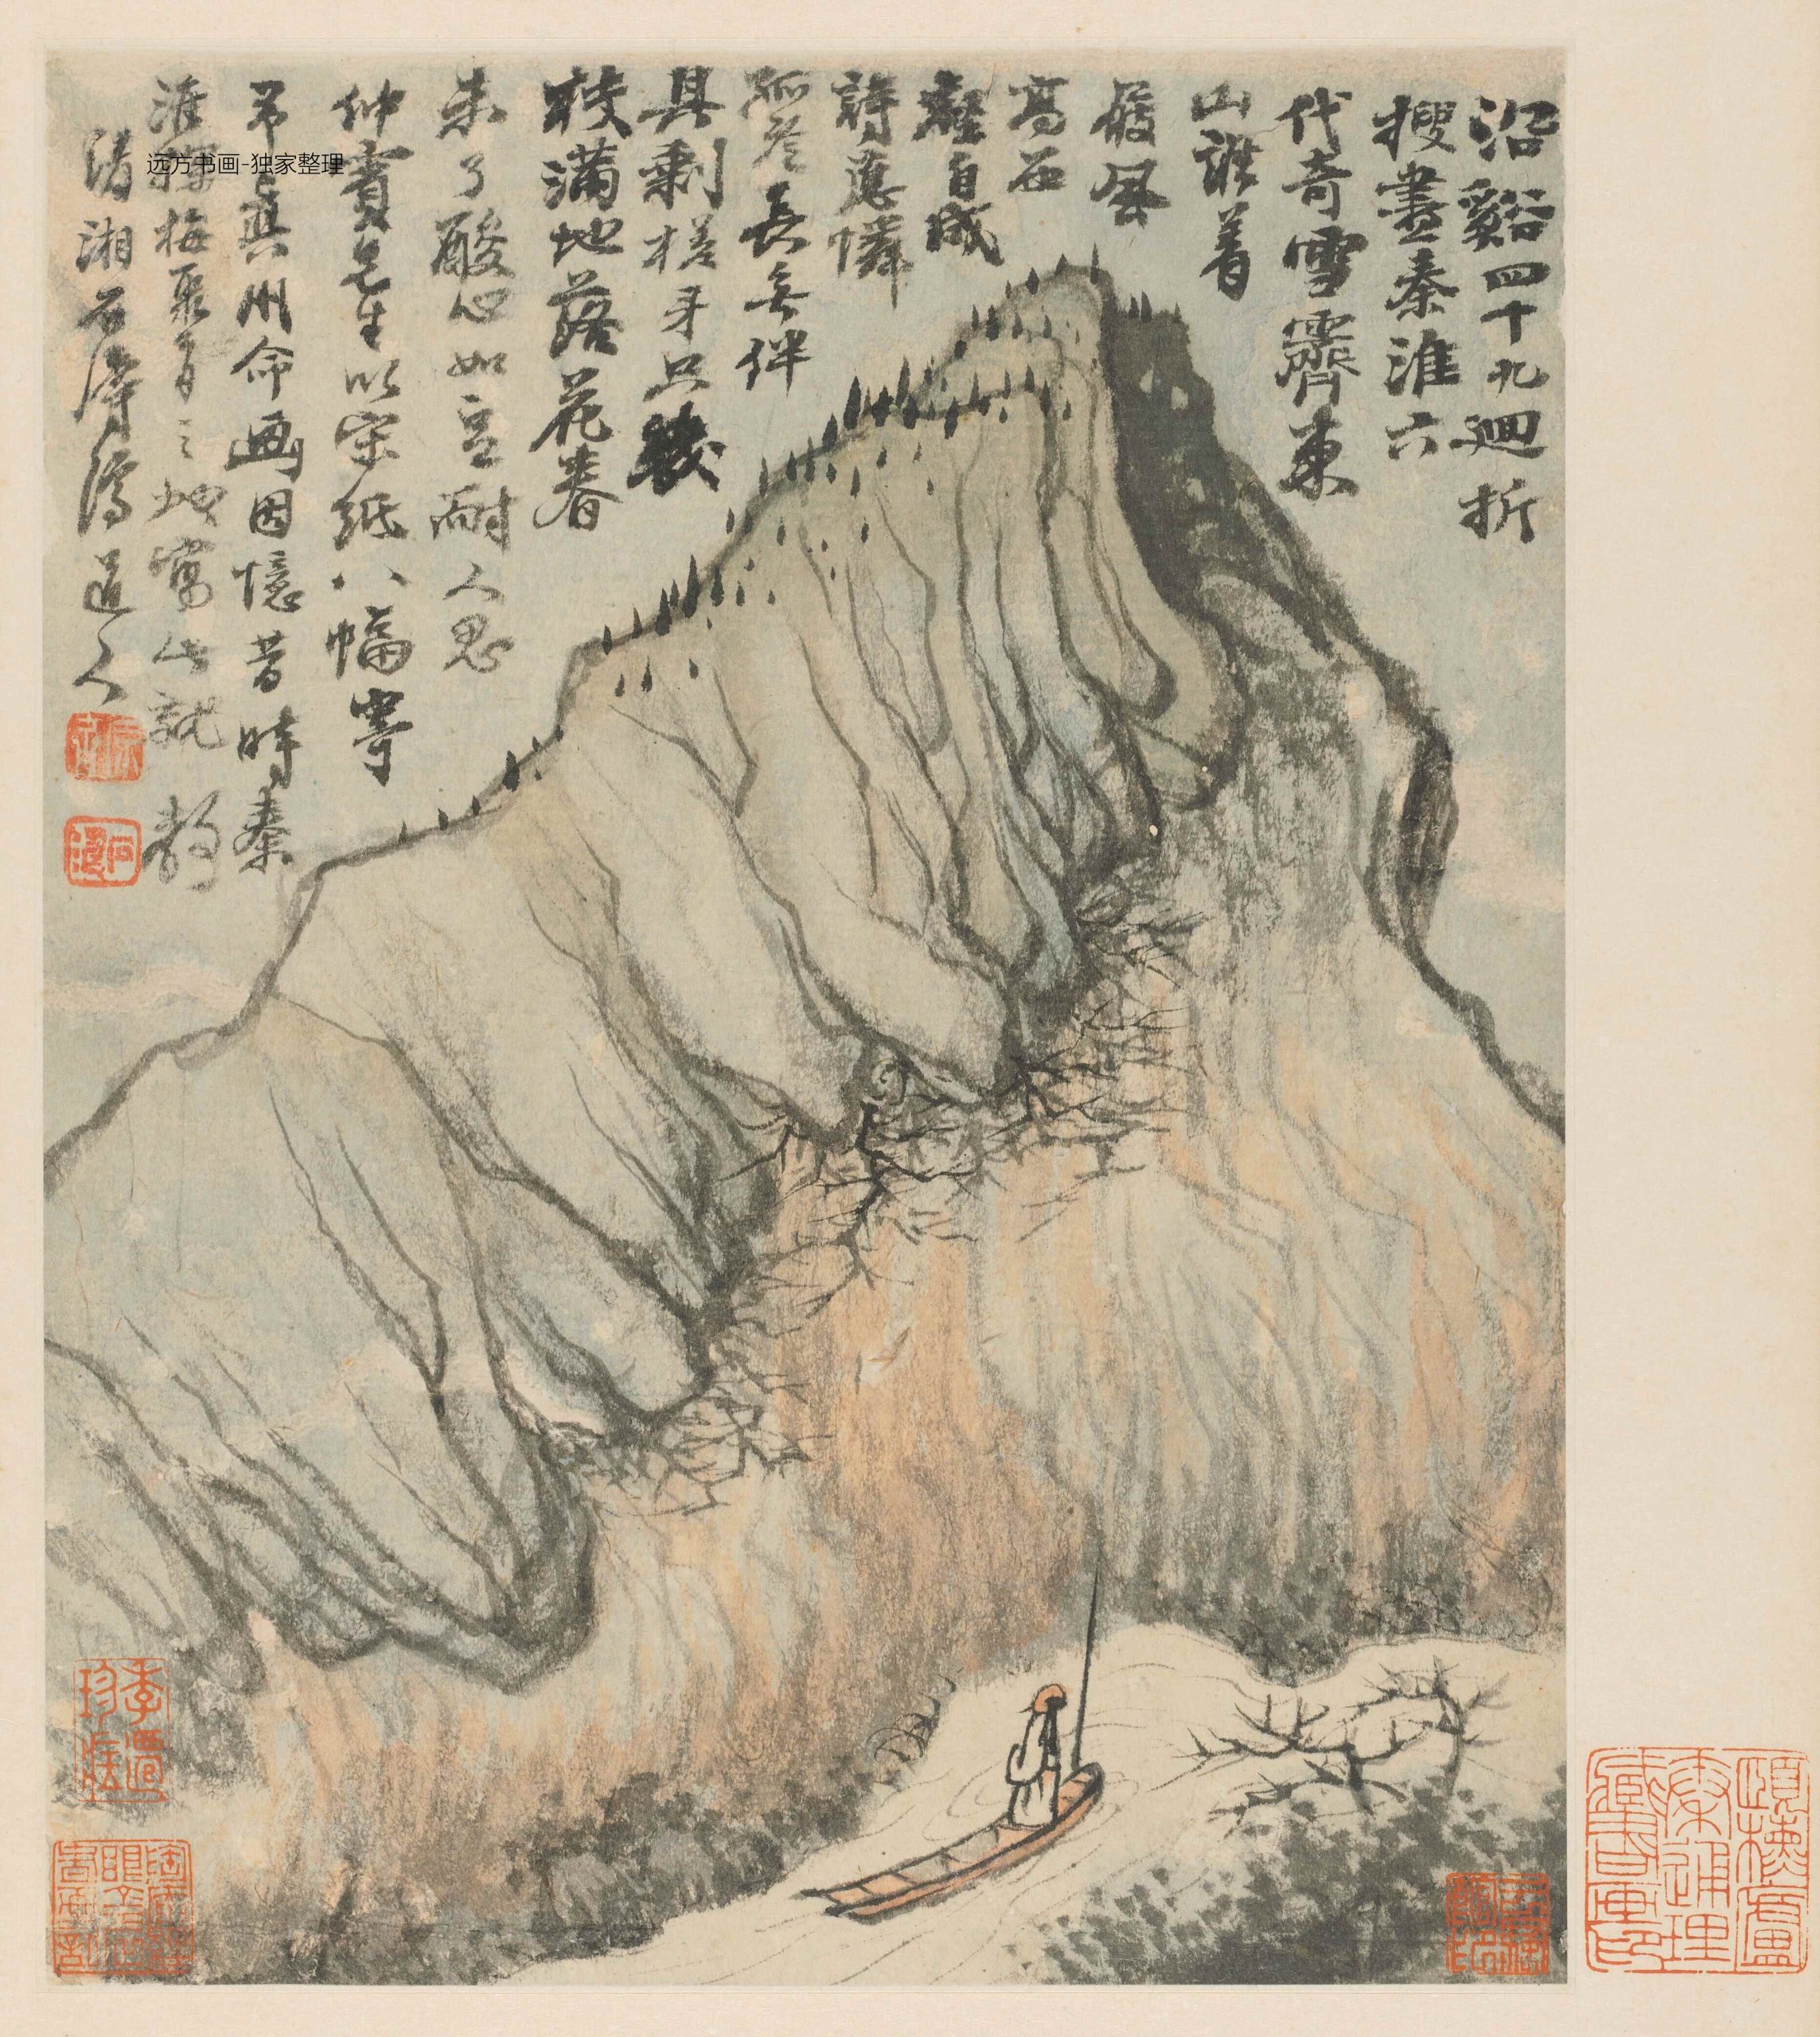 沿谿四十九迴折
搜盡秦淮六
代奇雪霽東
山誰着
屐風
高石
壑自成
詩應憐
孤老長無伴
具剩槎牙只幾
枝滿地落花春
未了酸心如豆耐人思
仲賓先生以宋紙八幅寄
弔真州命画因憶昔時秦
淮探梅聚首之地寫此就教
清湘石濤濟道人
远方书画-独家整理
珍藏